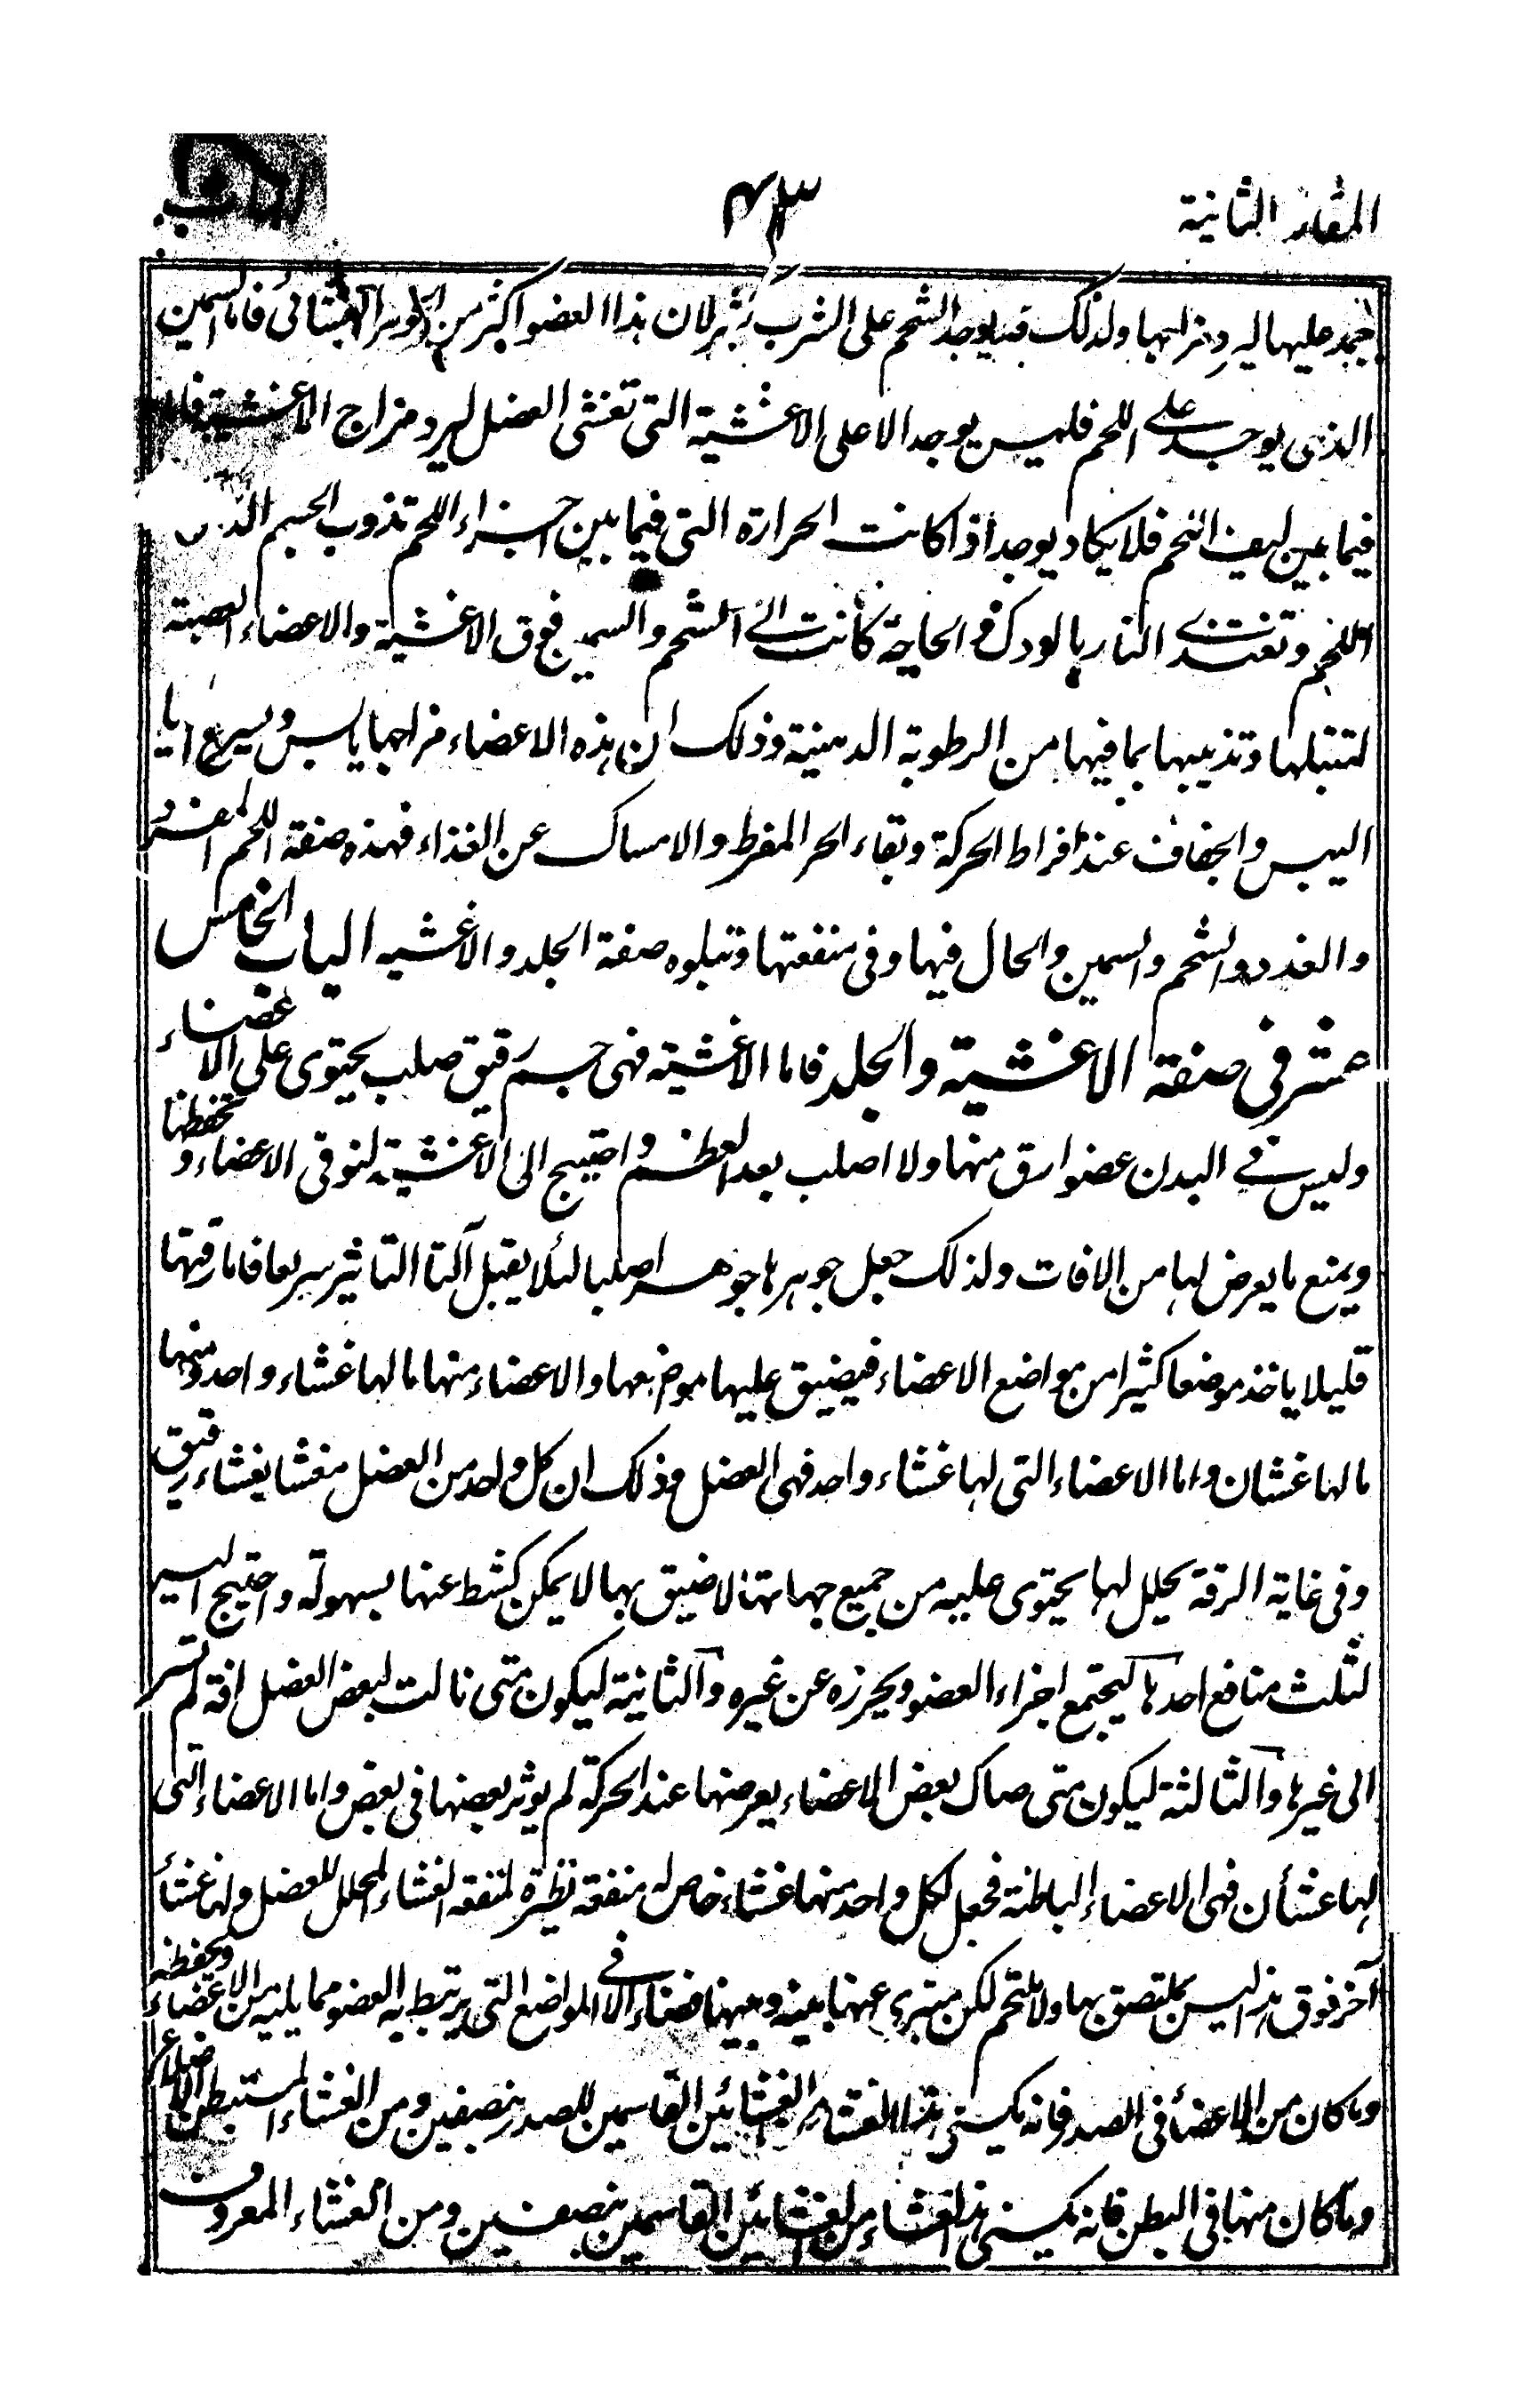 المقالة الثانية
٤٣
فيجمد عليها لبرد مزاجها ولذلك قد يوجد الشحم على الثرب كثير لان هذا العضو اكثر من الجوهر الغشائى فاما السمين
الذى يوجد على اللحم فليس يوجد الا على الاغشية التى تغشى العضل لبرد مزاج الاغشية فاما
فيما بين ليف اللحم فلا يكاد يوجد اذا كانت الحرارة التى فيما بين اجزاء اللحم تذوب الجسم الدسم
اللحم وتغتذى النار بالودك و الحاجة كانت الى الشحم والسمين فوق الاغشية والاعضاء العصبية
لتبلها وتذيبها بما فيها من الرطوبة الدهنية وذلك ان هذه الاعضاء مزاجها يابس ويسرع اليها
اليبس والجفاف عند افراط الحركة وبقاء الحر المفرط والامساك عن الغذاء فهذه صفة اللحم المفرد
والغدد والشحم والسمين والحال فيها وفى منفعتها وتتلوه صفة الجلد والاغشيه الباب الخامس
عشر فى صفة الاغشية والجلد فاما الاغشية فهى جسم رقيق صلب يحتوى على الاعضاء
وليس فى البدن عضو ارق منها ولا اصلب بعد العظم واحتيج الى الاغشية لتوقى الاعضاء وتحفظها
ويمنع ما يعرض لها من الافات ولذلك جعل جوهرها جوهرا صلبا لئلا يقبل التاثير سريعا فاما رقتها
قليلا ياخذ موضعا كثيرا من مواضع الاعضاء فيضيق عليها موضعها والاعضاء منها ما لها غشاء واحد ومنها
ما لها غشان واما الاعضاء التى لها غشاء واحد فهى العضل وذلك ان كل واحد من العضل مغشا بغشاء رقيق
وفى غاية الرقة يحلل لها يحتوى عليه من جميع جهاتها لاضيق بها لا يمكن كشط عنها بسهولة واحتيج اليه
لثلث منافع احدها ليجتمع اجزاء العضو ويحرزه عن غيره والثانية ليكون متى نالت لبعض العضل افة لم تسر
الى غيرها والثالثة ليكون متى صاك بعض الاعضاء بعضها عند الحركة لم يوثر بعضها فى بعض واما الاعضاء التى
لها غشأن فهى الاعضاء الباطنة فجعل لكل واحد منها غشاء خاص له منفعة نظيرة لمنفعة الغشاء المحلل للعضل ولها غشأ
آخر فوق هذا ليس بملتصق بها ولا ملتحم لكن متبرى عنها بينه وبينها فضاء الا فى المواضع التى يرتبط به العضو مما يليه من الاعضاء ويحفظه
وما كان من الاعضأ فى الصدر فانه يكتسى هذا الغشاء من الغشائين القاسمين للصدر بنصفين ومن الغشاء المستبطن للاضلاع
وما كان منها فى البطن فانه يكتسى هذا الغشاء من الغشائين القاسمين بنصفين ومن الغشاء المعروف